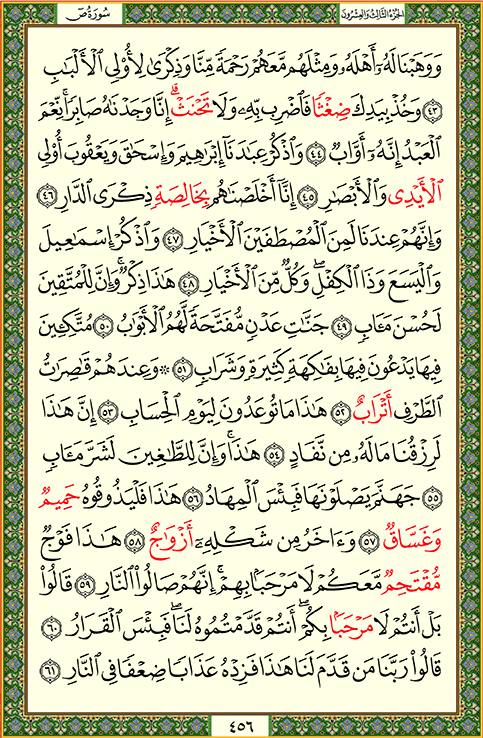 الجزء الثالث والعشرون
سورة ص
وَوَهَبْنَا لَهُۥٓ أَهْلَهُۥ وَمِثْلَهُم مَّعَهُمْ رَحْمَةً مِّنَّا وَذِكْرَىٰ لِأُو۟لِى ٱلْأَلْبَـٰبِ
٤٣ وَخُذْ بِيَدِكَ ضِغْثًا فَٱضْرِب بِّهِۦ وَلَا تَحْنَثْ ۗ إِنَّا وَجَدْنَـٰهُ صَابِرًا ۚ نِّعْمَ
ٱلْعَبْدُ ۖ إِنَّهُۥٓ أَوَّابٌ ٤٤ وَٱذْكُرْ عِبَـٰدَنَآ إِبْرَٰهِيمَ وَإِسْحَـٰقَ وَيَعْقُوبَ أُو۟لِى
ٱلْأَيْدِى وَٱلْأَبْصَـٰرِ ٤٥ إِنَّآ أَخْلَصْنَـٰهُم بِخَالِصَةٍ ذِكْرَى ٱلدَّارِ ٤٦
وَإِنَّهُمْ عِندَنَا لَمِنَ ٱلْمُصْطَفَيْنَ ٱلْأَخْيَارِ ٤٧ وَٱذْكُرْ إِسْمَـٰعِيلَ
وَٱلْيَسَعَ وَذَا ٱلْكِفْلِ ۖ وَكُلٌّ مِّنَ ٱلْأَخْيَارِ ٤٨ هَـٰذَا ذِكْرٌ ۚ وَإِنَّ لِلْمُتَّقِينَ
لَحُسْنَ مَـَٔابٍ ٤٩ جَنَّـٰتِ عَدْنٍ مُّفَتَّحَةً لَّهُمُ ٱلْأَبْوَٰبُ ٥٠ مُتَّكِـِٔينَ
فِيهَا يَدْعُونَ فِيهَا بِفَـٰكِهَةٍ كَثِيرَةٍ وَشَرَابٍ ٥١ ۞ وَعِندَهُمْ قَـٰصِرَٰتُ
ٱلطَّرْفِ أَتْرَابٌ ٥٢ هَـٰذَا مَا تُوعَدُونَ لِيَوْمِ ٱلْحِسَابِ ٥٣ إِنَّ هَـٰذَا
لَرِزْقُنَا مَا لَهُۥ مِن نَّفَادٍ ٥٤ هَـٰذَا ۚ وَإِنَّ لِلطَّـٰغِينَ لَشَرَّ مَـَٔابٍ
٥٥ جَهَنَّمَ يَصْلَوْنَهَا فَبِئْسَ ٱلْمِهَادُ ٥٦ هَـٰذَا فَلْيَذُوقُوهُ حَمِيمٌ
وَغَسَّاقٌ ٥٧ وَءَاخَرُ مِن شَكْلِهِۦٓ أَزْوَٰجٌ ٥٨ هَـٰذَا فَوْجٌ
مُّقْتَحِمٌ مَّعَكُمْ ۖ لَا مَرْحَبًۢا بِهِمْ ۚ إِنَّهُمْ صَالُوا۟ ٱلنَّارِ ٥٩ قَالُوا۟
بَلْ أَنتُمْ لَا مَرْحَبًۢا بِكُمْ ۖ أَنتُمْ قَدَّمْتُمُوهُ لَنَا ۖ فَبِئْسَ ٱلْقَرَارُ ٦٠
قَالُوا۟ رَبَّنَا مَن قَدَّمَ لَنَا هَـٰذَا فَزِدْهُ عَذَابًا ضِعْفًا فِى ٱلنَّارِ ٦١
٤٥٦